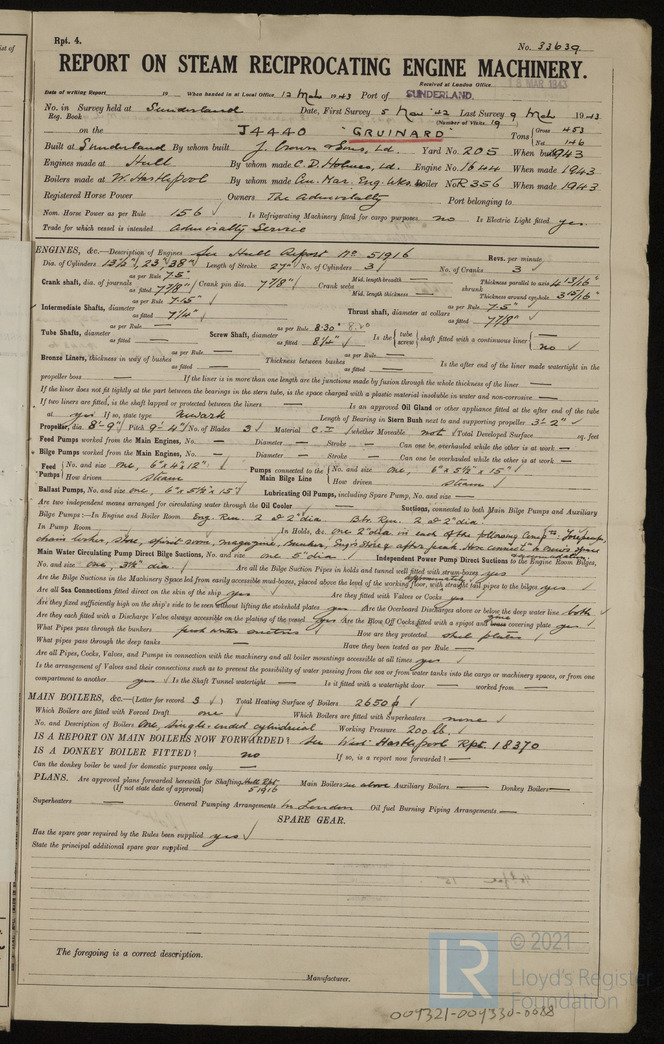 Rpt. 4.
No. 33639
REPORT ON STEAM RECIPROCATING ENGINE MACHINERY.
Received at London Office 18 MAR 1943
Date of writing Report 19 When handed in at Local Office 12 Mch 1943 Port of SUNDERLAND.
No. in Reg. Book Survey held at Sunderland Date, First Survey 5 Nov '42 Last Survey 9 Mch 1943
(Number of Visits 19)
on the J4440 "GRUINARD" Tons Gross 453 Net 146
Built at Sunderland By whom built J. Crown & Sons, Ld. Yard No. 205 When built 1943
Engines made at Hull By whom made C.D. Holmes, Ld. Engine No. 1644 When made 1943
Boilers made at W. Hartlepool By whom made Cen. Mar. Eng. Wks. Boiler No. R356 When made 1943
Registered Horse Power Owners The Admiralty Port belonging to
Nom. Horse Power as per Rule 156 Is Refrigerating Machinery fitted for cargo purposes no Is Electric Light fitted yes
Trade for which vessel is intended Admiralty Service
ENGINES, &c.—Description of Engines See Hull Report No 51916 Revs. per minute
Dia. of Cylinders 13½", 23", 38" Length of Stroke 27" No. of Cylinders 3 No. of Cranks 3
Crank shaft, dia. of journals as per Rule 7.5 as fitted 7⅞" Crank pin dia. 7⅞" Crank webs Mid. length breadth — Mid. length thickness — shrunk Thickness parallel to axis 4 13/16" Thickness around eye-hole 3 15/16"
Intermediate Shafts, diameter as per Rule 7.15" as fitted 7¼" Thrust shaft, diameter at collars as per Rule 7.5" as fitted 7⅞"
Tube Shafts, diameter as per Rule — as fitted — Screw Shaft, diameter as per Rule 8.30" as fitted 8¼" Is the { tube screw } shaft fitted with a continuous liner { — no
Bronze Liners, thickness in way of bushes as per Rule — as fitted — Thickness between bushes as per Rule — as fitted — Is the after end of the liner made watertight in the
propeller boss — If the liner is in more than one length are the junctions made by fusion through the whole thickness of the liner —
If the liner does not fit tightly at the part between the bearings in the stern tube, is the space charged with a plastic material insoluble in water and non-corrosive —
If two liners are fitted, is the shaft lapped or protected between the liners — Is an approved Oil Gland or other appliance fitted at the after end of the tube
at yes If so, state type Newark Length of Bearing in Stern Bush next to and supporting propeller 3'-2"
Propeller, dia. 8'-9" Pitch 9'-4" No. of Blades 3 Material C.I. whether Moveable not Total Developed Surface sq. feet
Feed Pumps worked from the Main Engines, No. — Diameter — Stroke — Can one be overhauled while the other is at work —
Bilge Pumps worked from the Main Engines, No. — Diameter — Stroke — Can one be overhauled while the other is at work —
Feed Pumps { No. and size one, 6" x 4" x 12" How driven steam Pumps connected to the Main Bilge Line { No. and size one, 6" x 5½" x 15" How driven steam
Ballast Pumps, No. and size one, 6" x 5½" x 15" Lubricating Oil Pumps, including Spare Pump, No. and size —
Are two independent means arranged for circulating water through the Oil Cooler — Suctions, connected to both Main Bilge Pumps and Auxiliary
Bilge Pumps:—In Engine and Boiler Room Eng. Rm. 2 @ 2" dia. Blr. Rm. 2 @ 2" dia.
In Pump Room In Holds, &c. one 2" dia in each of the following Compts. Forepeak,
chain locker, Store, spirit room, magazine, Bunker,
Main Water Circulating Pump Direct Bilge Suctions, No. and size one 5" dia. Independent Power Pump Direct Suctions to the Engine Room Bilges,
No. and size one, 3½" dia. Are all the Bilge Suction Pipes in holds and tunnel well fitted with strum-boxes yes
Are the Bilge Suctions in the Machinery Space led from easily accessible mud-boxes, placed above the level of the working floor, with straight tail pipes to the bilges yes
Are all Sea Connections fitted direct on the skin of the ship yes Are they fitted with Valves or Cocks yes
Are they fixed sufficiently high on the ship's side to be seen without lifting the stokehold plates yes Are the Overboard Discharges above or below the deep water line both
Are they each fitted with a Discharge Valve always accessible on the plating of the vessel yes Are the Blow Off Cocks fitted with a spigot and brass covering plate yes
What Pipes pass through the bunkers How are they protected steel plates
What pipes pass through the deep tanks — Have they been tested as per Rule —
Are all Pipes, Cocks, Valves, and Pumps in connection with the machinery and all boiler mountings accessible at all times yes
Is the arrangement of Valves and their connections such as to prevent the possibility of water passing from the sea or from water tanks into the cargo or machinery spaces, or from one
compartment to another yes Is the Shaft Tunnel watertight — Is it fitted with a watertight door — worked from —
MAIN BOILERS, &c.—(Letter for record S) Total Heating Surface of Boilers 2650
Which Boilers are fitted with Forced Draft one Which Boilers are fitted with Superheaters none
No. and Description of Boilers One, single-ended cylindrical Working Pressure 200 lb.
IS A REPORT ON MAIN BOILERS NOW FORWARDED? See West Hartlepool Rpt. 18370
IS A DONKEY BOILER FITTED? no If so, is a report now forwarded? —
Can the donkey boiler be used for domestic purposes only —
PLANS. Are approved plans forwarded herewith for Shafting Hull Rpt. 51916 Main Boilers as above Auxiliary Boilers — Donkey Boilers —
(If not state date of approval)
Superheaters — General Pumping Arrangements In London Oil fuel Burning Piping Arrangements —
SPARE GEAR.
Has the spare gear required by the Rules been supplied yes
State the principal additional spare gear supplied
The foregoing is a correct description.
Manufacturer.
LR © 2021
Lloyd's Register
Foundation
004321-004330-0088